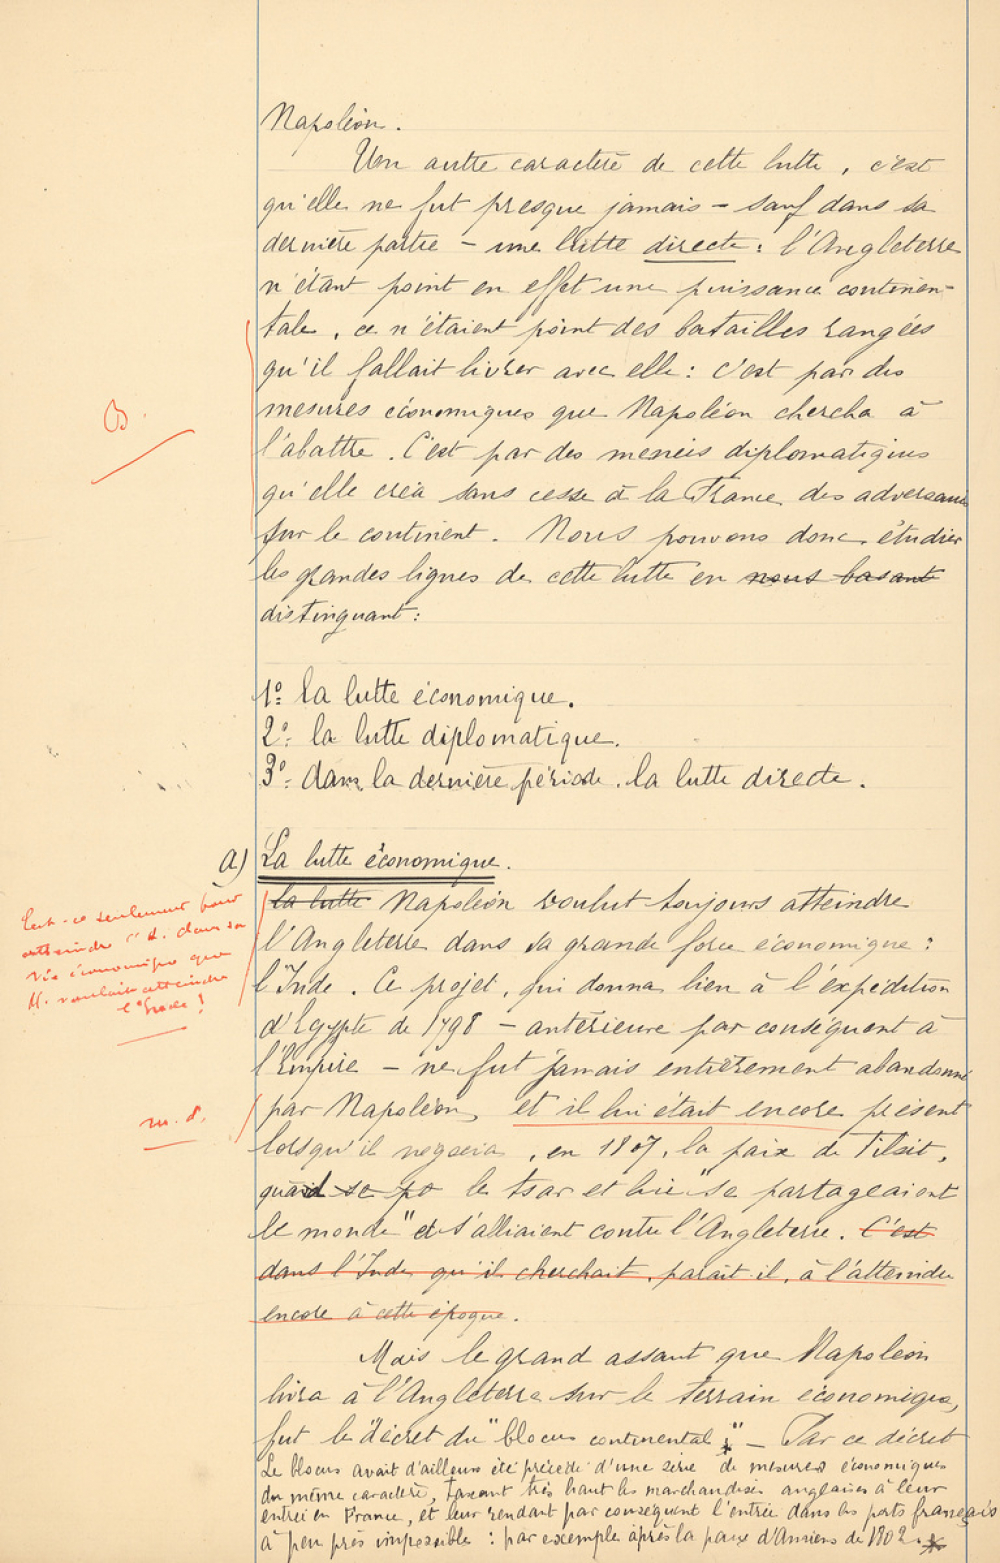 Napoléon.
Un autre caractère de cette lutte, c'est
qu'elle ne fut presque jamais – sauf dans sa
dernière partie – une lutte directe : l'Angleterre
n'étant point en effet une puissance continen-
tale, ce n'étaient point des batailles rangées
qu'il fallait livrer avec elle : c'est par des
mesures économiques que Napoléon chercha à
l'abattre. C'est par des menées diplomatiques
qu'elle créa sans cesse à la France des adversaires
sur le continent. Nous pouvons donc étudier
les grandes lignes de cette lutte en nous basant
distinguant :
1º: la lutte économique.
2º: la lutte diplomatique.
3º: dans la dernière période, la lutte directe.
B
a) La lutte économique.
la lutte Napoléon voulut toujours atteindre
l'Angleterre dans sa grande force économique :
l'Inde. Ce projet, qui donna lieu à l'expédition
d'Egypte de 1798 – antérieure par conséquent à
l'Empire – ne fut jamais entièrement abandonné
par Napoléon, et il lui était encore présent
lorsqu'il négocia, en 1807, la paix de Tilsit,
quand se po le tsar et lui "se partageaient
le monde" et s'alliaient contre l'Angleterre. C'est
dans l'Inde qu'il cherchait, paraît-il, à l'atteindre
encore à cette époque.
Est-ce seulement pour
atteindre l'A. dans sa
vie économique que
N. voulait atteindre
l'Inde !
m. d.
Mais le grand assaut que Napoléon
livra à l'Angleterre sur le terrain économique,
fut le décret du "blocus continental" – Par ce décret
Le blocus avait d'ailleurs été précédé d'une série de mesures économiques
du même caractère, taxant très haut les marchandises anglaises à leur
entrée en France, et leur rendant par conséquent l'entrée dans les ports français
à peu près impossible : par exemple après la paix d'Amiens de 1802.